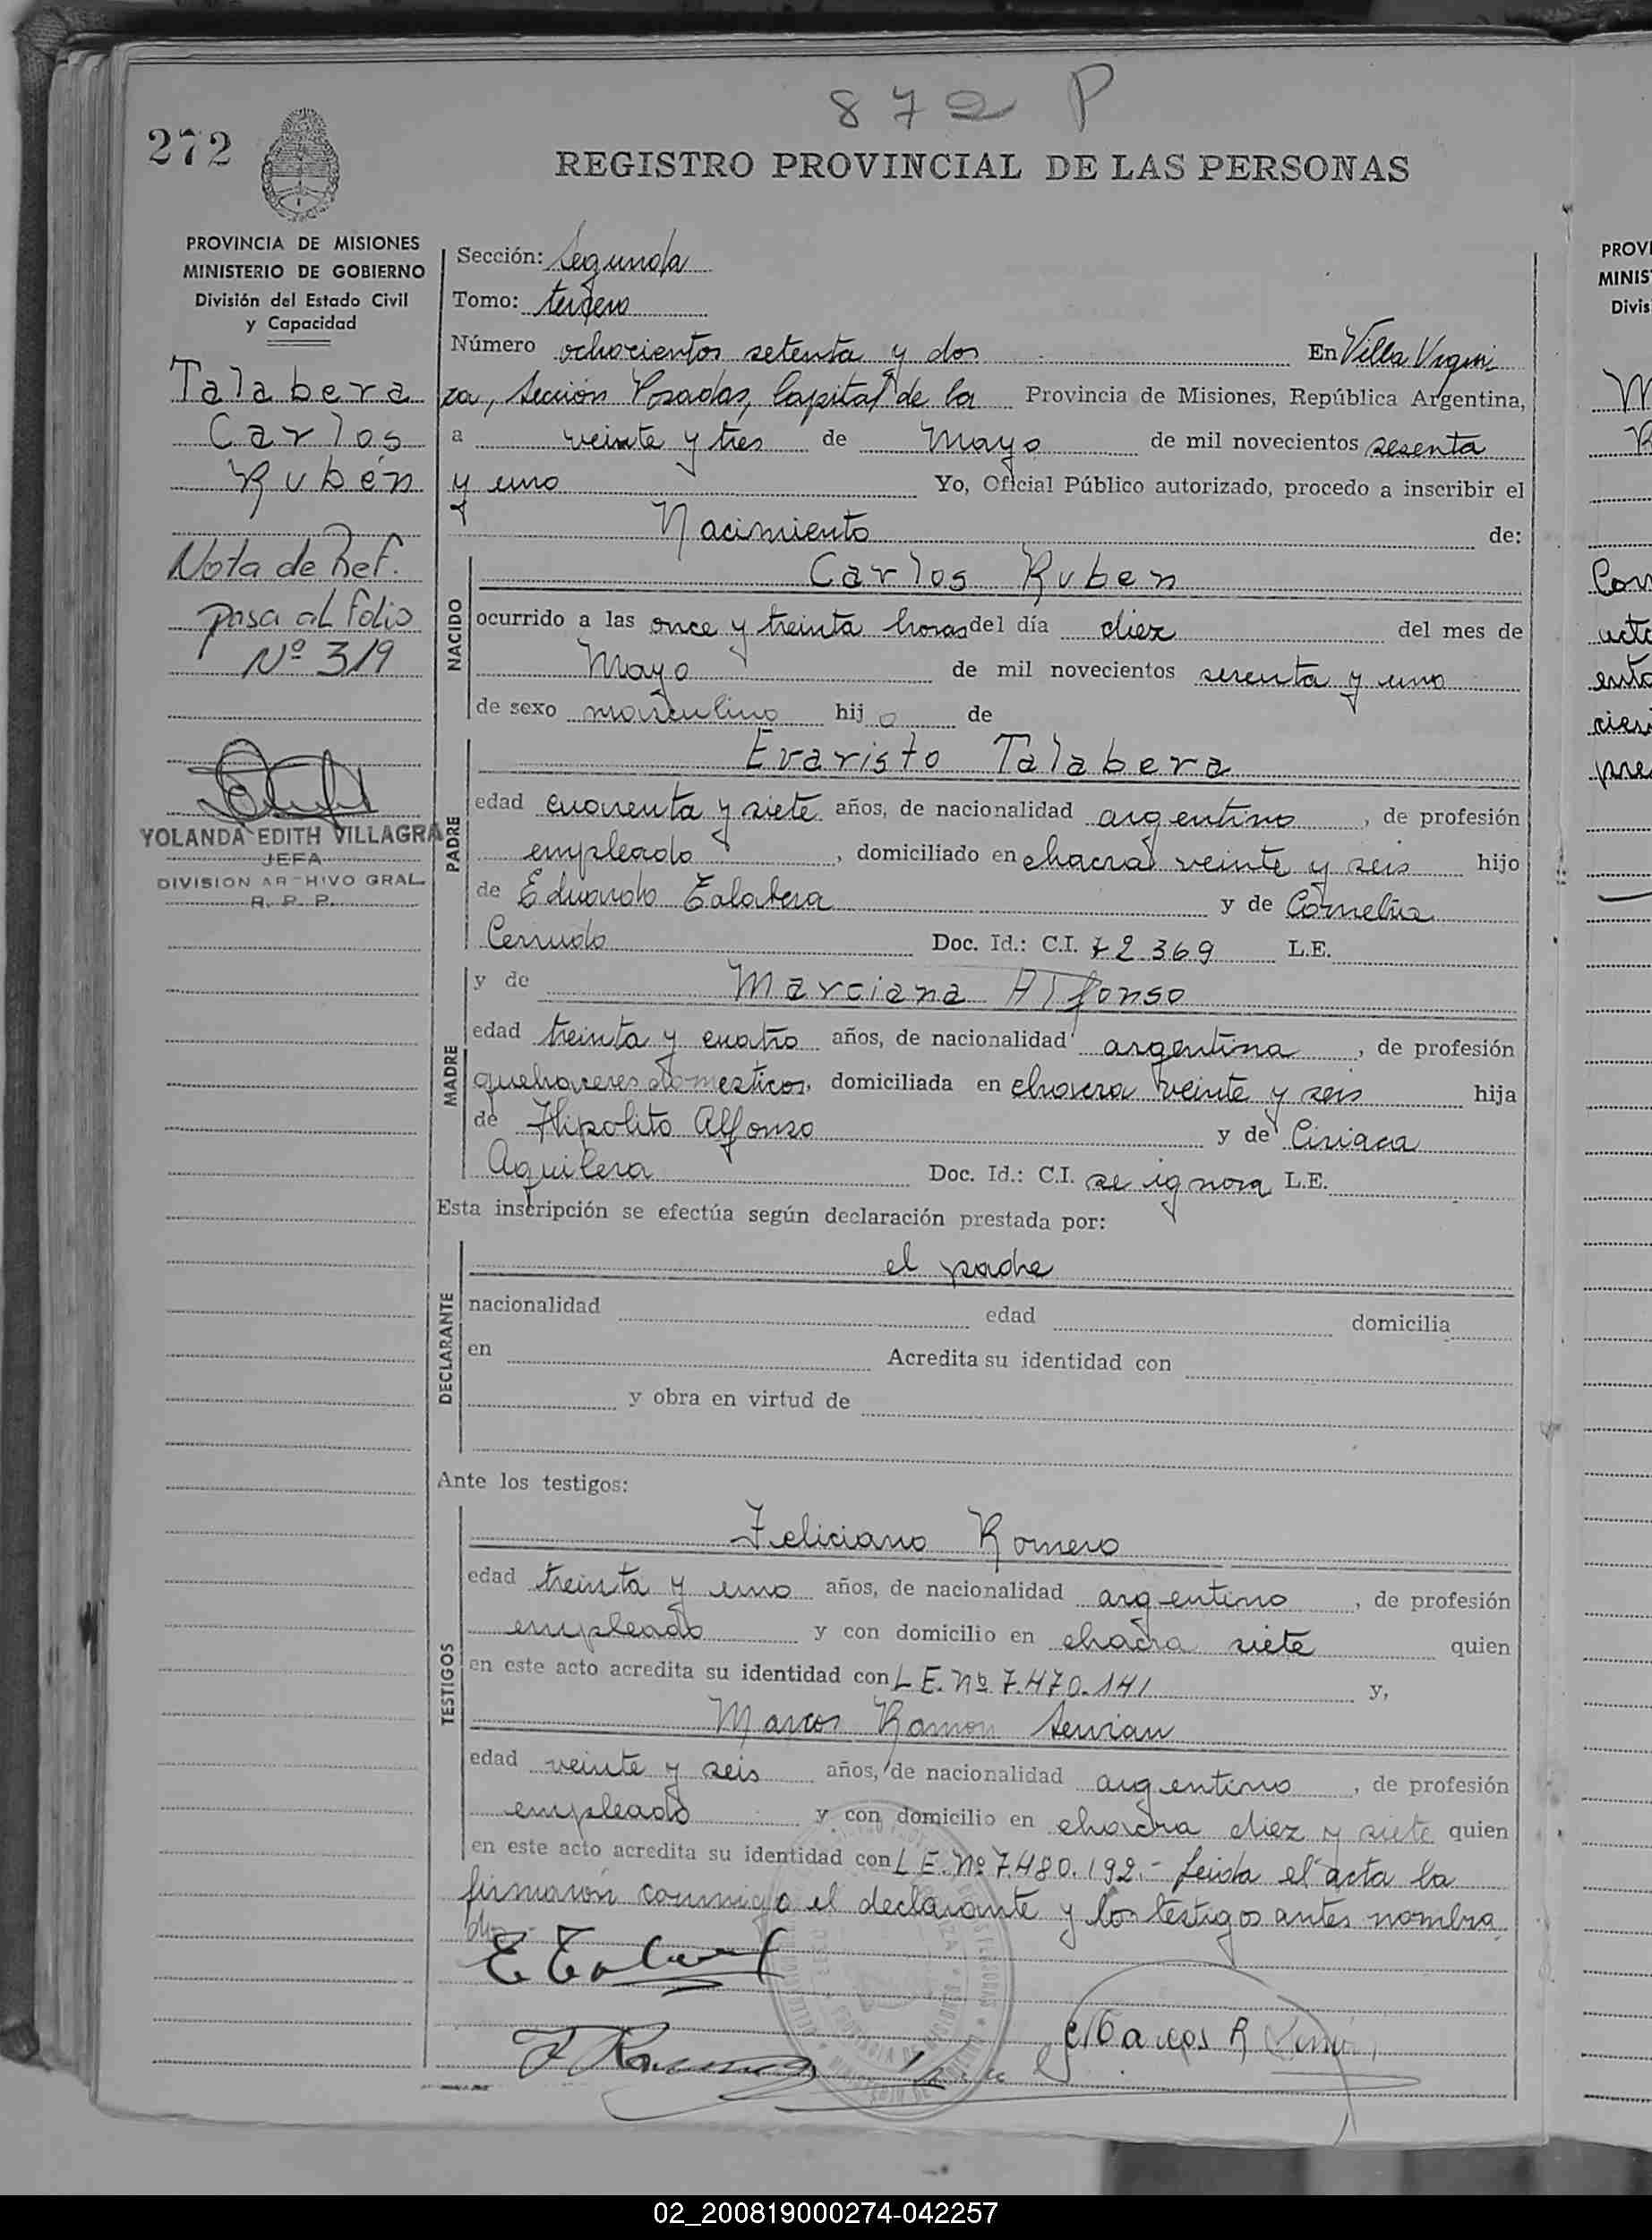 872 P
272
REGISTRO PROVINCIAL DE LAS PERSONAS
PROVINCIA DE MISIONES
MINISTERIO DE GOBIERNO
División del Estado Civil
y Capacidad
Talabera
Carlos
Rubén
Nota de Ref.
pasa al folio
Nº 319
YOLANDA EDITH VILLAGRA
JEFA
DIVISION ARCHIVO GRAL.
R. P. P.
Sección: Segunda
Tomo: tercero
Número ochocientos setenta y dos En Villa Urqui
za, Sección Posadas, Capital de la Provincia de Misiones, República Argentina,
a veinte y tres de Mayo de mil novecientos sesenta
y uno Yo, Oficial Público autorizado, procedo a inscribir el
Nacimiento de:
NACIDO
Carlos Ruben
ocurrido a las once y treinta horas del día diez del mes de
Mayo de mil novecientos sesenta y uno
de sexo masculino hijo de
PADRE
Evaristo Talabera
edad cuarenta y siete años, de nacionalidad argentino, de profesión
empleado, domiciliado en chacra veinte y seis hijo
de Eduardo Talabera y de Cornelia
Cerrudo Doc. Id.: C.I. 72.369 L.E.
MADRE
y de Marciana Alfonso
edad treinta y cuatro años, de nacionalidad argentina, de profesión
quehaceres domesticos, domiciliada en chacra veinte y seis hija
de Hipolito Alfonso y de Ciriaca
Aquilera Doc. Id.: C.I. se ignora L.E.
Esta inscripción se efectúa según declaración prestada por:
DECLARANTE
el padre
nacionalidad edad domicilia
en Acredita su identidad con
y obra en virtud de
Ante los testigos:
TESTIGOS
Feliciano Romero
edad treinta y uno años, de nacionalidad argentino, de profesión
empleado y con domicilio en chacra siete quien
en este acto acredita su identidad con L E. Nº 7.470.141 y,
Marcos Ramon Servian
edad veinte y seis años, de nacionalidad argentino, de profesión
empleado y con domicilio en chacra diez y siete quien
en este acto acredita su identidad con L E. Nº 7.480.192.- Leida el acta la
firmaron conmigo el declarante y los testigos antes nombra
dos.-
Marcos R
PROVI
MINIS
Divis
02_200819000274-042257